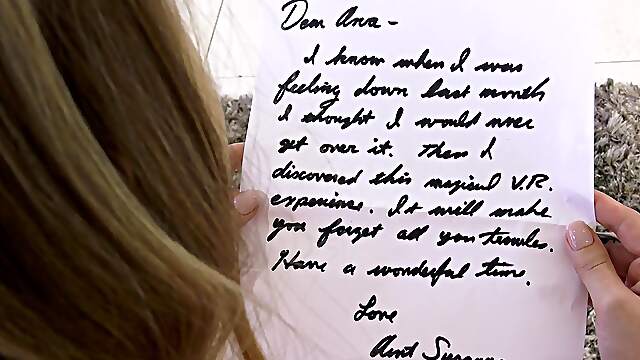 Dear Ava -
I know when I was
feeling down last month
I thought I would never
get over it. Then I
discovered this magical V.R.
experience. It will make
you forget all you troubles.
Have a wonderful time.
Love
Aunt